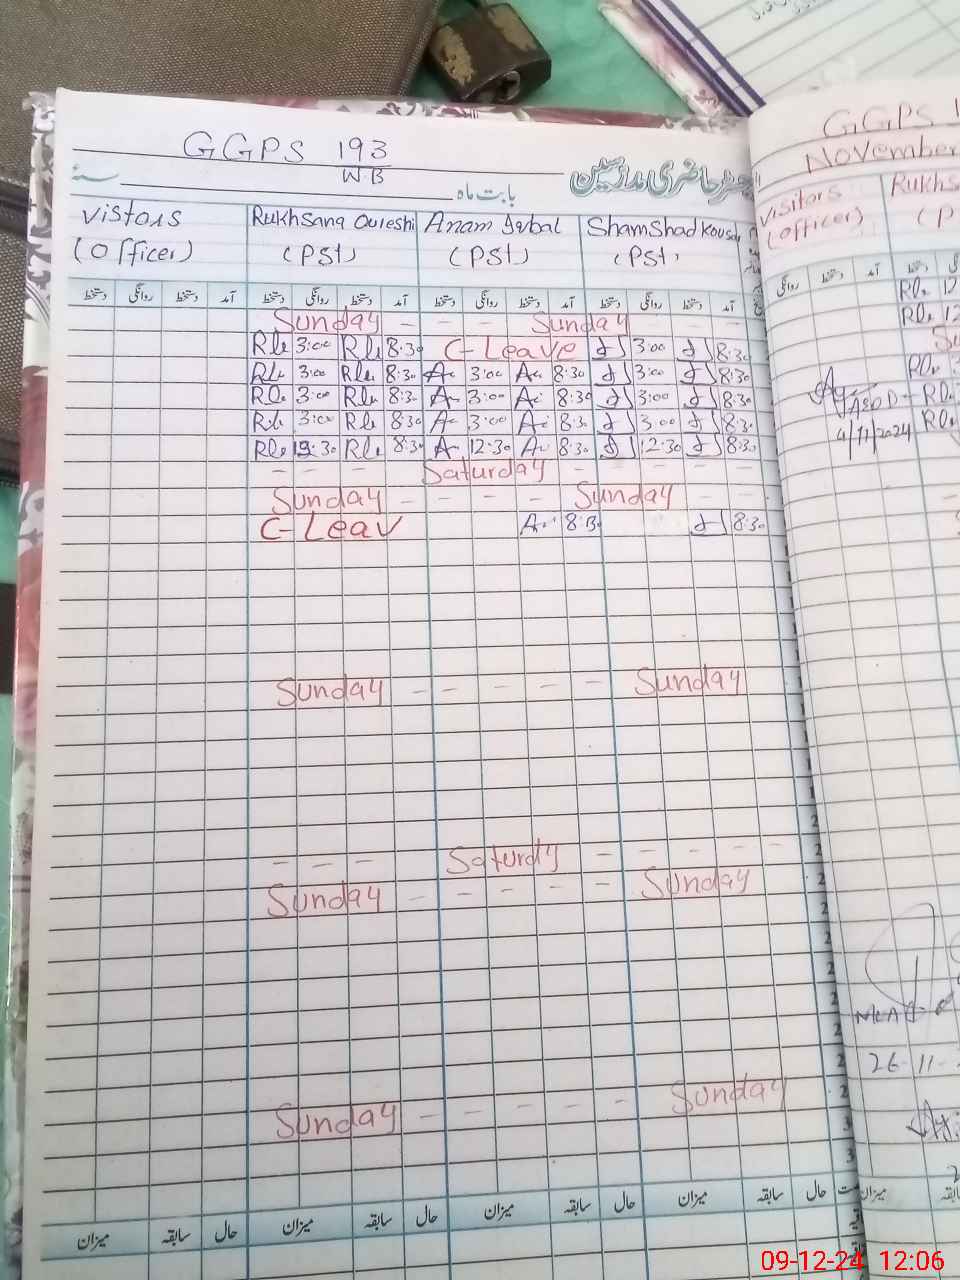 GGPS 193
WB
رجسٹر حاضری مدرسین
بابت ماہ
سنہ
Vistors Rukhsana Qureshi Anam Iqbal Shamshad Kousar
(Officer) (PSt) (PSt) (PSt)
دستخط روانگی دستخط آمد دستخط روانگی دستخط آمد دستخط روانگی دستخط آمد دستخط روانگی دستخط آمد
Sunday - - - Sunday - - -
Rle 3:00 Rle 8:30 C-Leave 3:00 8:30
Rle 3:00 Rle 8:30 A 3:00 A 8:30 3:00 8:30
Rle 3:00 Rle 8:30 A 3:00 A 8:30 3:00 8:30
Rle 3:00 Rle 8:30 A 3:00 A 8:30 3:00 8:30
Rle 12:30 Rle 8:30 A 12:30 A 8:30 12:30 8:30
- - - Saturday - - - -
Sunday - - - - Sunday - -
C-Leav A 8:30 8:30
Sunday - - - - - Sunday
- - - Saturdy - - - - -
Sunday - - - - - Sunday
Sunday - - - - - Sunday
میزان سابقہ حال میزان سابقہ حال میزان سابقہ حال میزان سابقہ حال
GGPS 1
November
Visitors Rukhs
(officer) (P
دستخط آمد
Rle 12
Rle 12
Su
AEOD
4/11/2024
MEA
26-11-
میزان
09-12-24 12:06